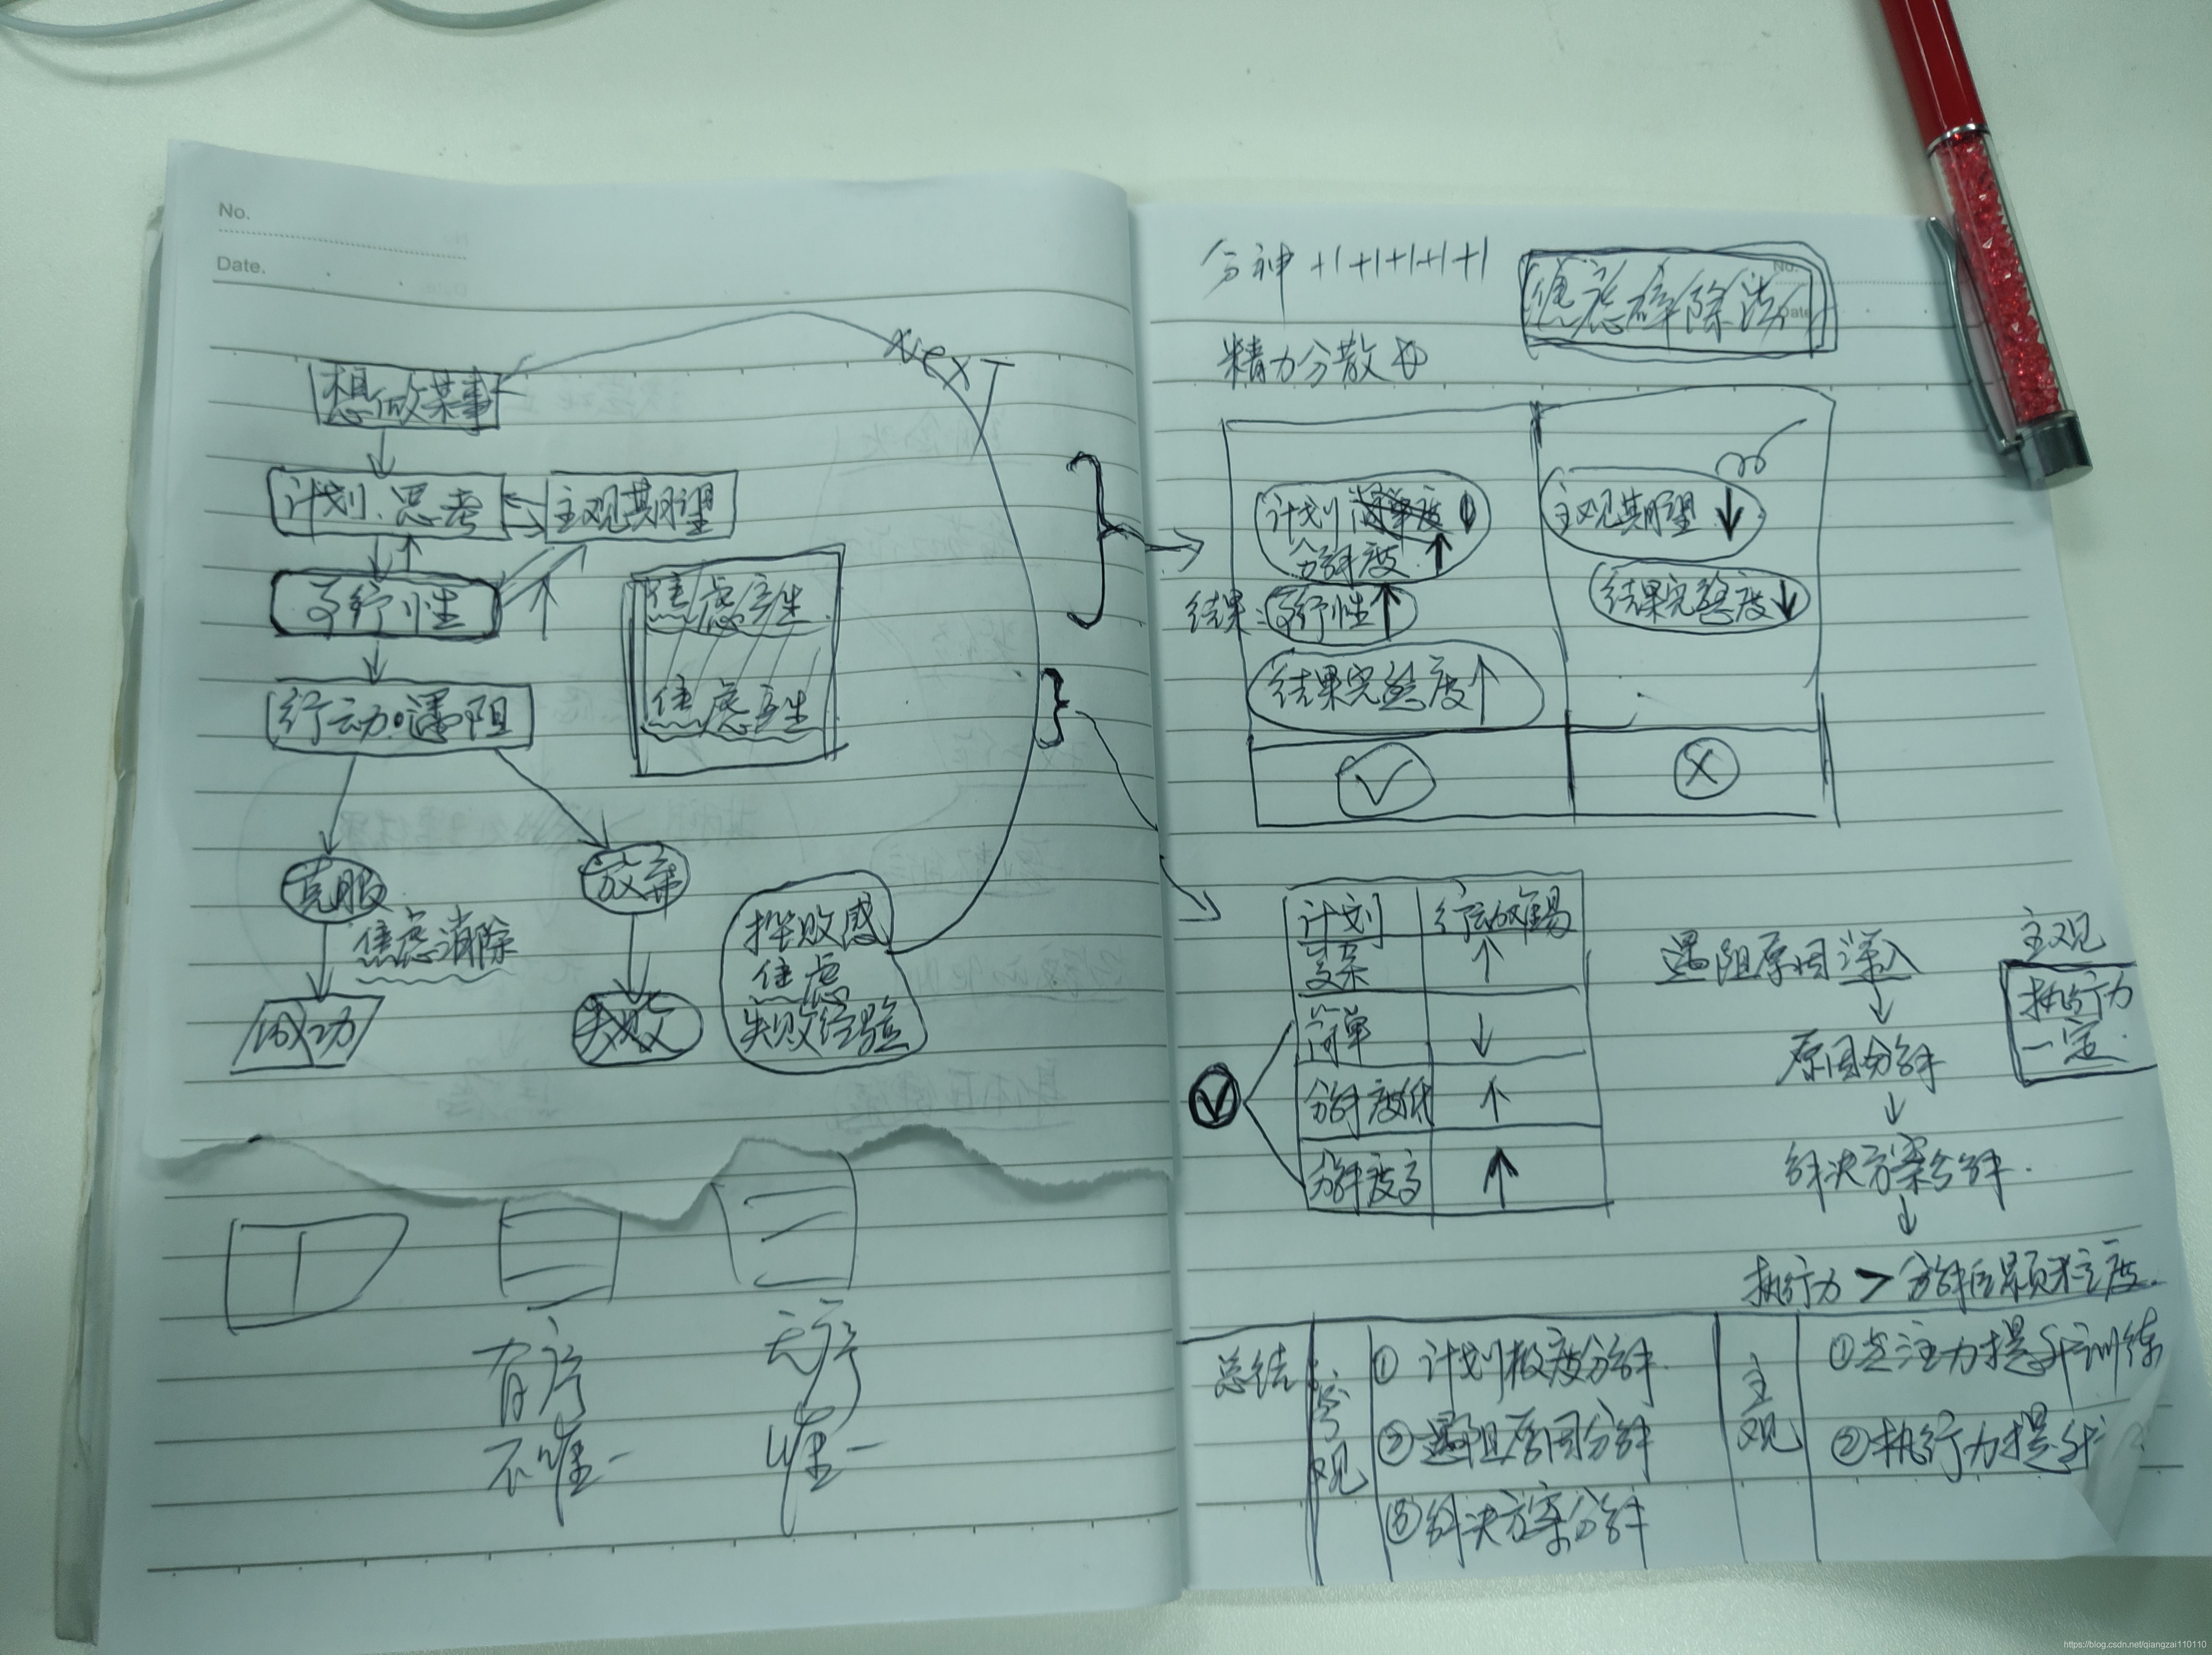 No.
Date.
NexT
想做某事
计划、思考
主观期望
可行性
焦虑产生
焦虑产生
行动遇阻
克服
放弃
焦虑消除
成功
失败
挫败感
焦虑
失败经验
有序
不唯一
无序
唯一
分神 +1+1+1+1+1
焦虑解除法
No.
Date
精力分散
计划简单度
分解度 ↑
主观期望 ↓
结果: 可行性 ↑
结果完整度 ↓
结果完整度 ↑
计划 复杂 ↑
行动难易
简单 ↓
分解度低 ↑
分解度高 ↑
遇阻原因深入
↓
原因分解
↓
解决方案分解.
↓
执行力 > 分解后颗粒度.
主观
执行力
一定.
总结
客观
① 计划极度分解.
② 遇阻原因分解
③ 解决方案分解
主观
① 专注力提升训练
② 执行力提升
https://blog.csdn.net/qiangzai110110